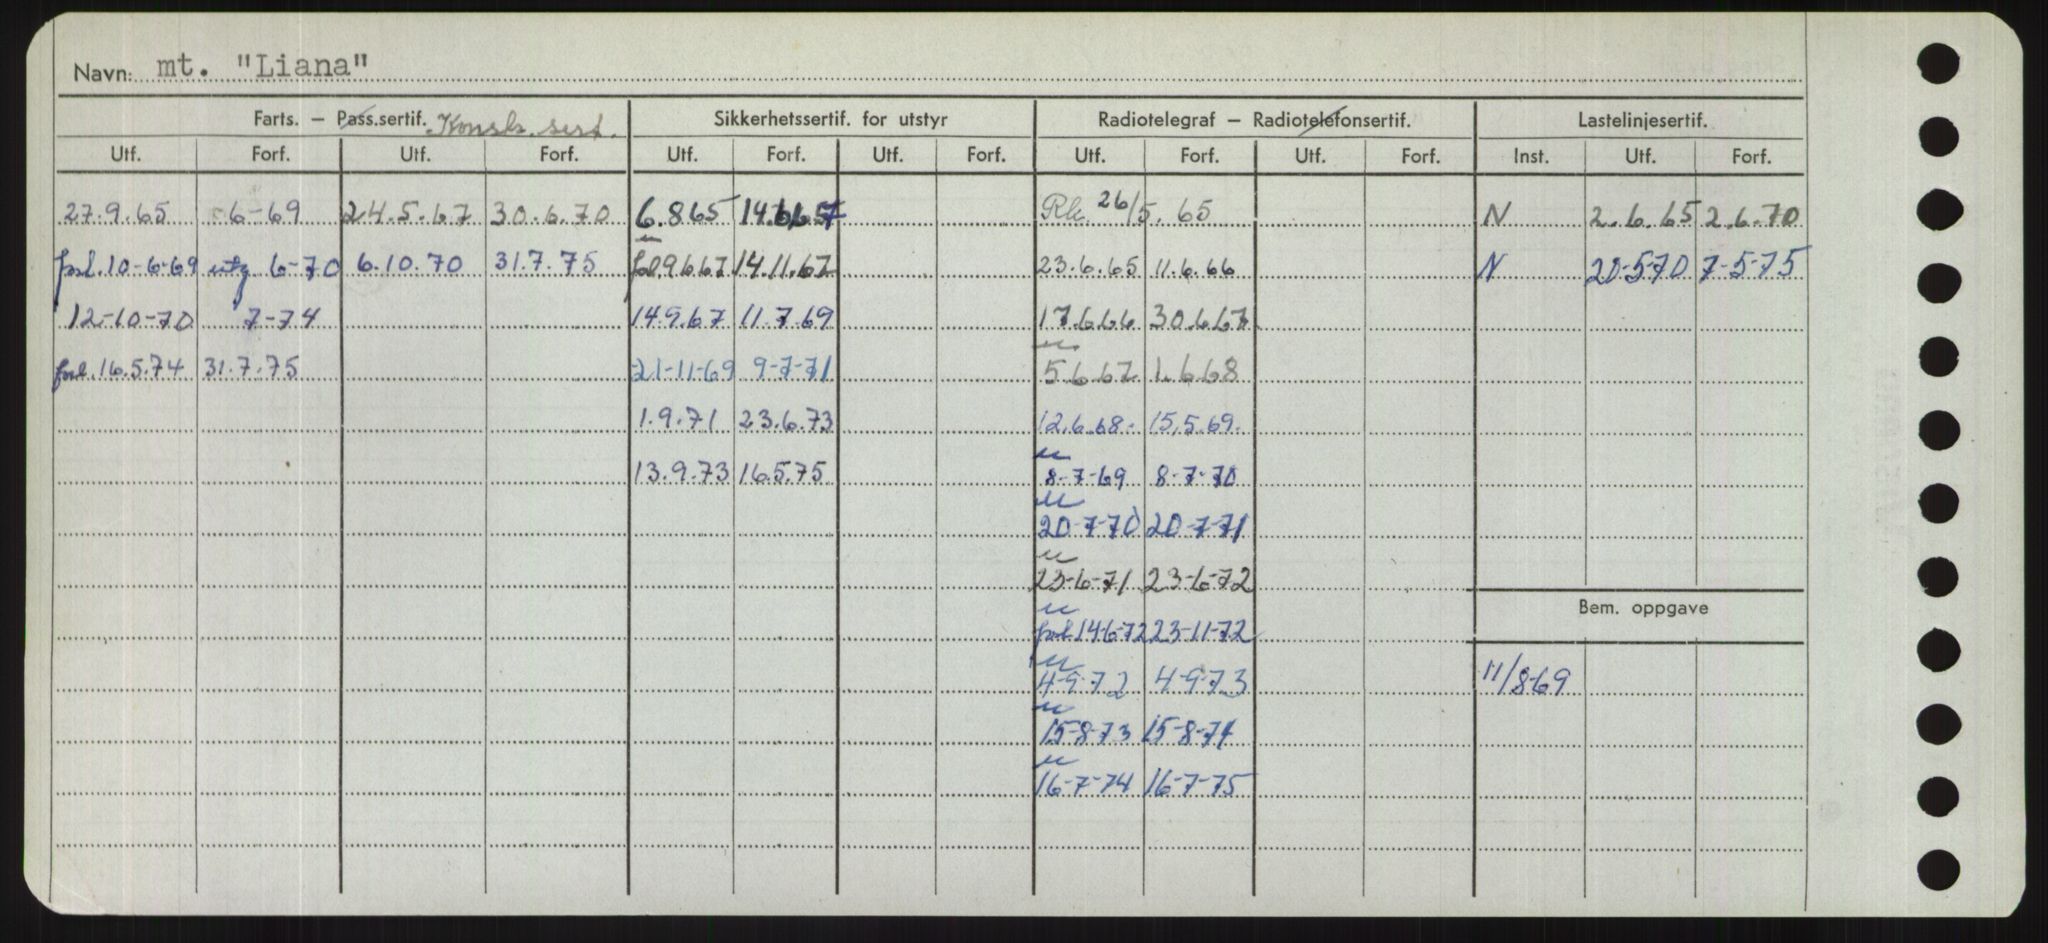 Navn: mt. "Liana"
Farts. – Pass.sertif. Konstr. sert. Sikkerhetssertif. for utstyr Radiotelegraf – Radiotelefonsertif. Lastelinjesertif.
Utf. Forf. Utf. Forf. Utf. Forf. Utf. Forf. Utf. Forf. Utf. Forf. Inst. Utf. Forf.
27.9.65 6-69 24.5.67 30.6.70 6.865 Rk 26/5.65 N 2.6.65 2.6.70
forl. 10-6-69 utg 6-70 6.10.70 31.7.75 9667 14.11.67 23.6.65 11.6.66 N 20-5-70 7-5-75
12-10-70 7-74 14.9.67 11.7.69 17.6.66 30.6.67
forl. 16.5.74 31.7.75 21-11-69 9-7-71 5667 1.668
1.9.71 23.6.73 12.6.68. 15.5.69.
13.9.73 16.5.75 8-7-69 8-7-70
20-7-70 20-7-71
23-6-71 23-6-72
Bem. oppgave
forl 14-6-72 23-11-72
4-9-72 4-9-73 11/8-69
15-8-73 15-8-74
16-7-74 16-7-75